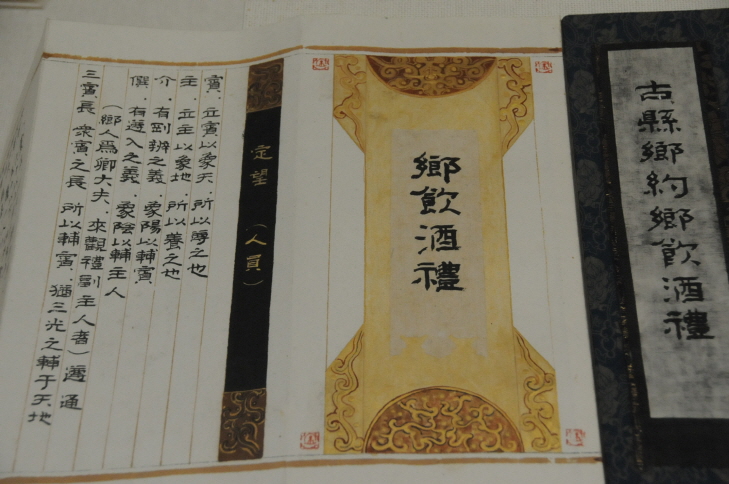 古縣鄉約鄉飮酒禮
鄉飮酒禮
定望 (人員)
賓、立賓以象天、所以尊之也
主、立主以象地、所以養之也
介、有剛辨之義、象陽以輔賓
僎、有遜入之義、象陰以輔主人
(鄉人爲卿大夫、來觀禮副主人者) 遵通
三賓長 衆賓之長 所以輔賓、猶三光之輔于天地